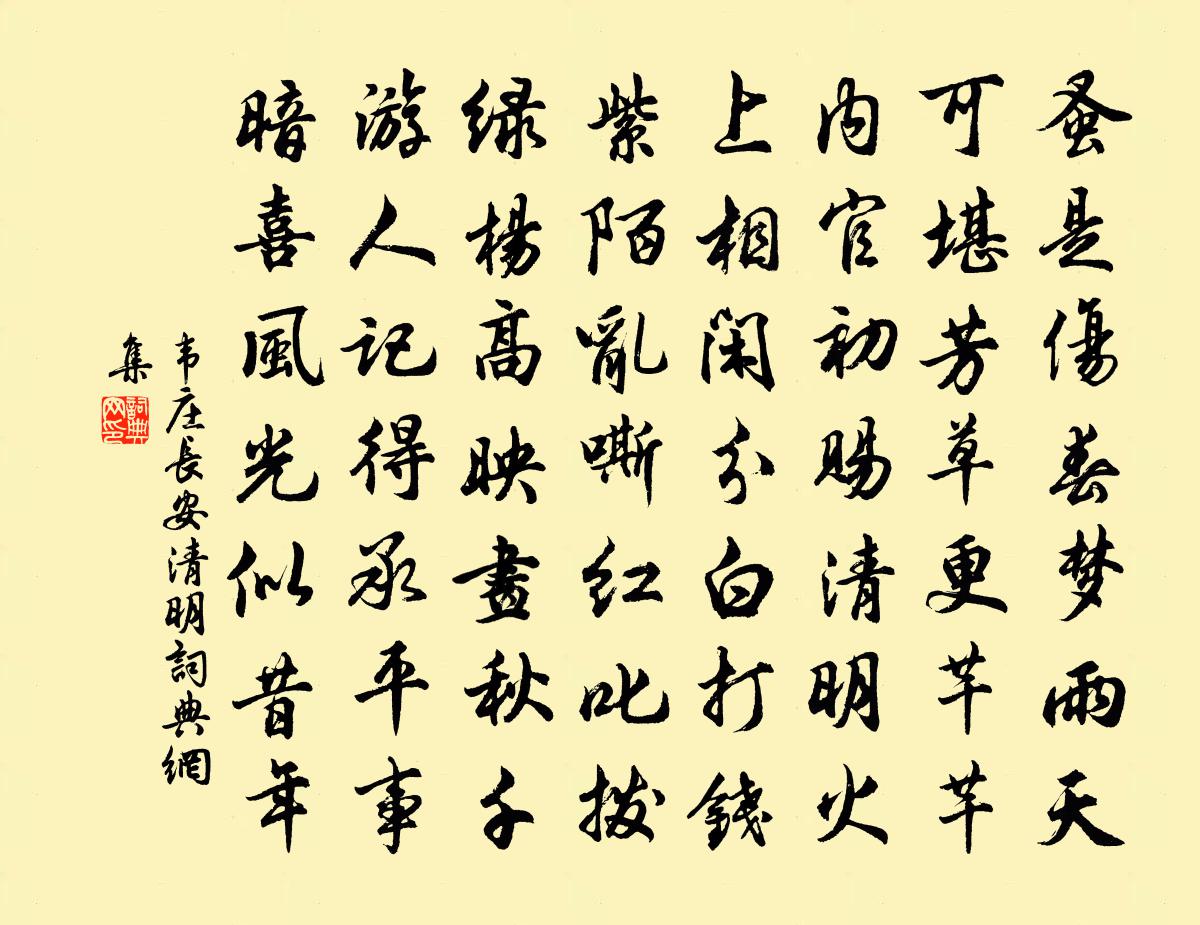 蚤是傷春梦雨天
可堪芳草更芊芊
内官初赐清明火
上相闲分白打錢
紫陌亂嘶红叱拨
绿楊高映畫秋千
游人记得承平事
暗喜風光似昔年
韦庄長安清明詞典網
集
詞典
网印